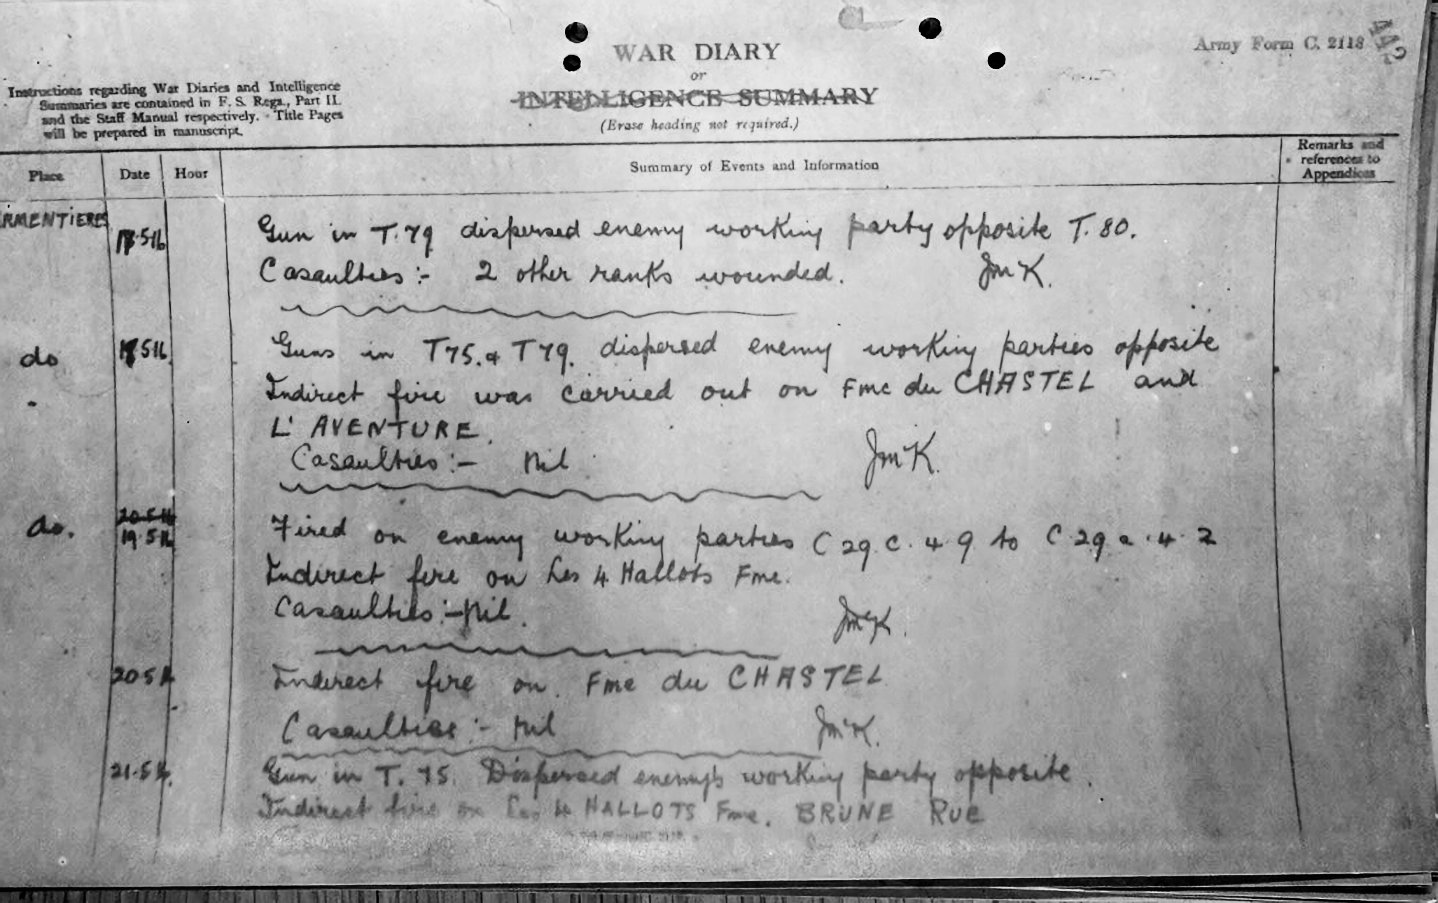 WAR DIARY
or
INTELLIGENCE SUMMARY
(Erase heading not required.)
Army Form C. 2118
Instructions regarding War Diaries and Intelligence
Summaries are contained in F. S. Regs., Part II.
and the Staff Manual respectively. Title Pages
will be prepared in manuscript.
Place
Date
Hour
Summary of Events and Information
Remarks and
references to
Appendices
RMENTIERES
Gun in T.79 dispersed enemy working party opposite T.80.
Casaulties :- 2 other ranks wounded. JMcK.
do
Guns in T75. & T79. dispersed enemy working parties opposite
Indirect fire was carried out on Fme du CHASTEL and
L' AVENTURE.
Casaulties :- Nil JMcK.
do.
20.5.16
19.5.16
Fired on enemy working parties C 29. C. 4. 9 to C 29 a. 4. 2
Indirect fire on Les 4 Hallots Fme.
Casaulties :- Nil. JMcK.
20 5 16
Indirect fire on. Fme du CHASTEL
Casaulties :- Nil JMcK.
21.5.16.
Gun in T. 75. Dispersed enemy's working party opposite.
Indirect fire on Les 4 HALLOTS Fme. BRUNE RUE